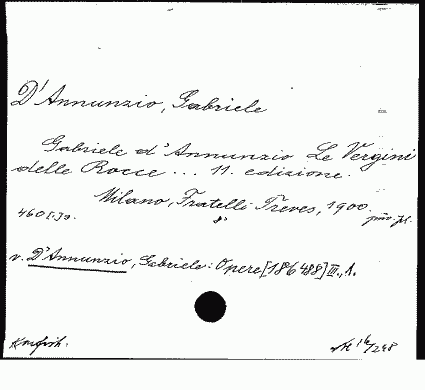 D'Annunzio, Gabriele
Gabriele d'Annunzio Le Vergini
delle Rocce ... 11. edizione.
Milano, Fratelli Treves, 1900.
460 [1] s. 8°
v. D'Annunzio, Gabriele: Opere [186488] III., 1.